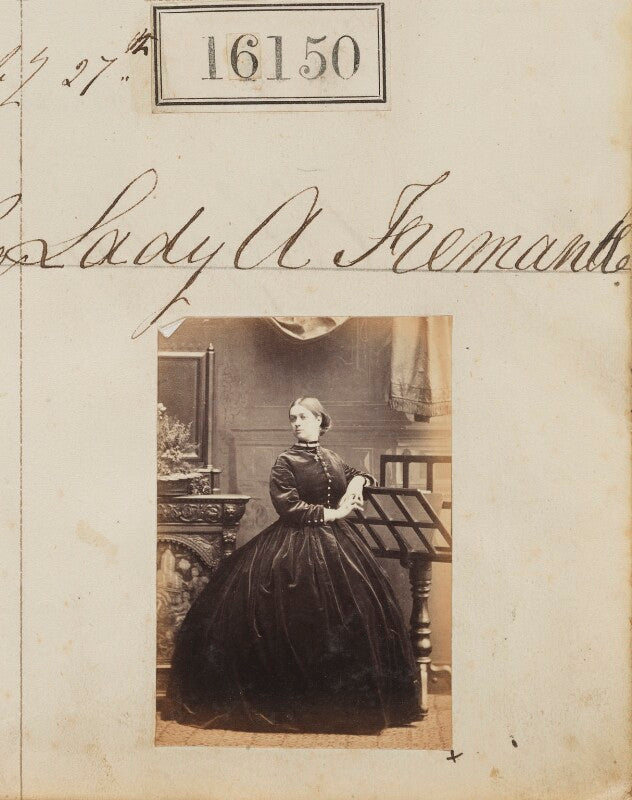 27.th
16150
Lady A Fremantle